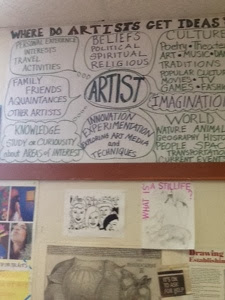 WHERE DO ARTISTS GET IDEAS?
PERSONAL EXPERIENCE
INTERESTS
TRAVEL
ACTIVITIES
BELIEFS
POLITICAL
SPIRITUAL
RELIGIOUS
CULTURE
Poetry • Theater
ART • MUSIC •
TRADITIONS
POPULAR CULTURE
MOVIES • TV
GAMES • FASHION
FAMILY
FRIENDS
AQUAINTANCES
OTHER ARTISTS
ARTIST
IMAGINATION
KNOWLEDGE
STUDY or CURIOSITY
about AREAS of INTEREST
INNOVATION
EXPERIMENTATION
EXPLORING ART MEDIA
and
TECHNIQUES
WORLD
NATURE ANIMAL
GEOGRAPHY HISTORY
PEOPLE SPACE
TRANSPORTATION
CURRENT EVENTS
WHAT IS A STILLIFE
Drawing
Establishing
IT'S OK
TO ASK
FOR HELP